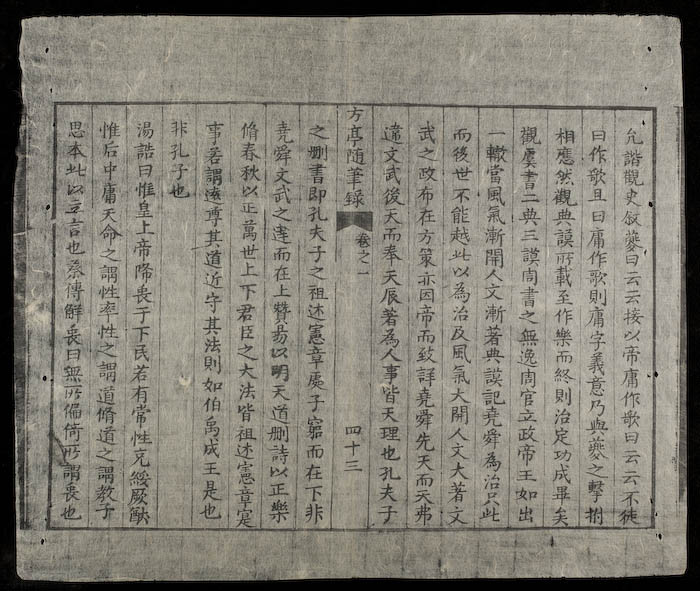 允諧觀史叙夔曰云云接以帝庸作歌曰云云不徒
曰作歌且曰庸作歌則庸字義意乃與夔之擊拊
相應然觀典謨所載至作樂而終則治定功成畢矣
觀虞書二典三謨周書之無逸周官立政帝王如出
一轍當風氣漸開人文漸著典謨記堯舜為治只此
而後世不能越此以為治及風氣大開人文大著文
武之政布在方策亦因帝而致詳堯舜先天而天弗
違文武後天而奉天辰著為人事皆天理也孔夫子
方亭隨筆録 卷之一 四十三
之删書即孔夫子之祖述憲章處子窮而在下非
堯舜文武之達而在上贊易以明天道删詩以正樂
脩春秋以正萬世上下君臣之大法皆祖述憲章寔
事若謂遠尊其道近守其法則如伯禹成王是也
非孔子也
湯誥曰惟皇上帝降衷于下民若有常性克綏厥猷
惟后中庸天命之謂性率性之謂道脩道之謂教子
思本此以立言也蔡傳解衷曰無所偏倚所謂衷也